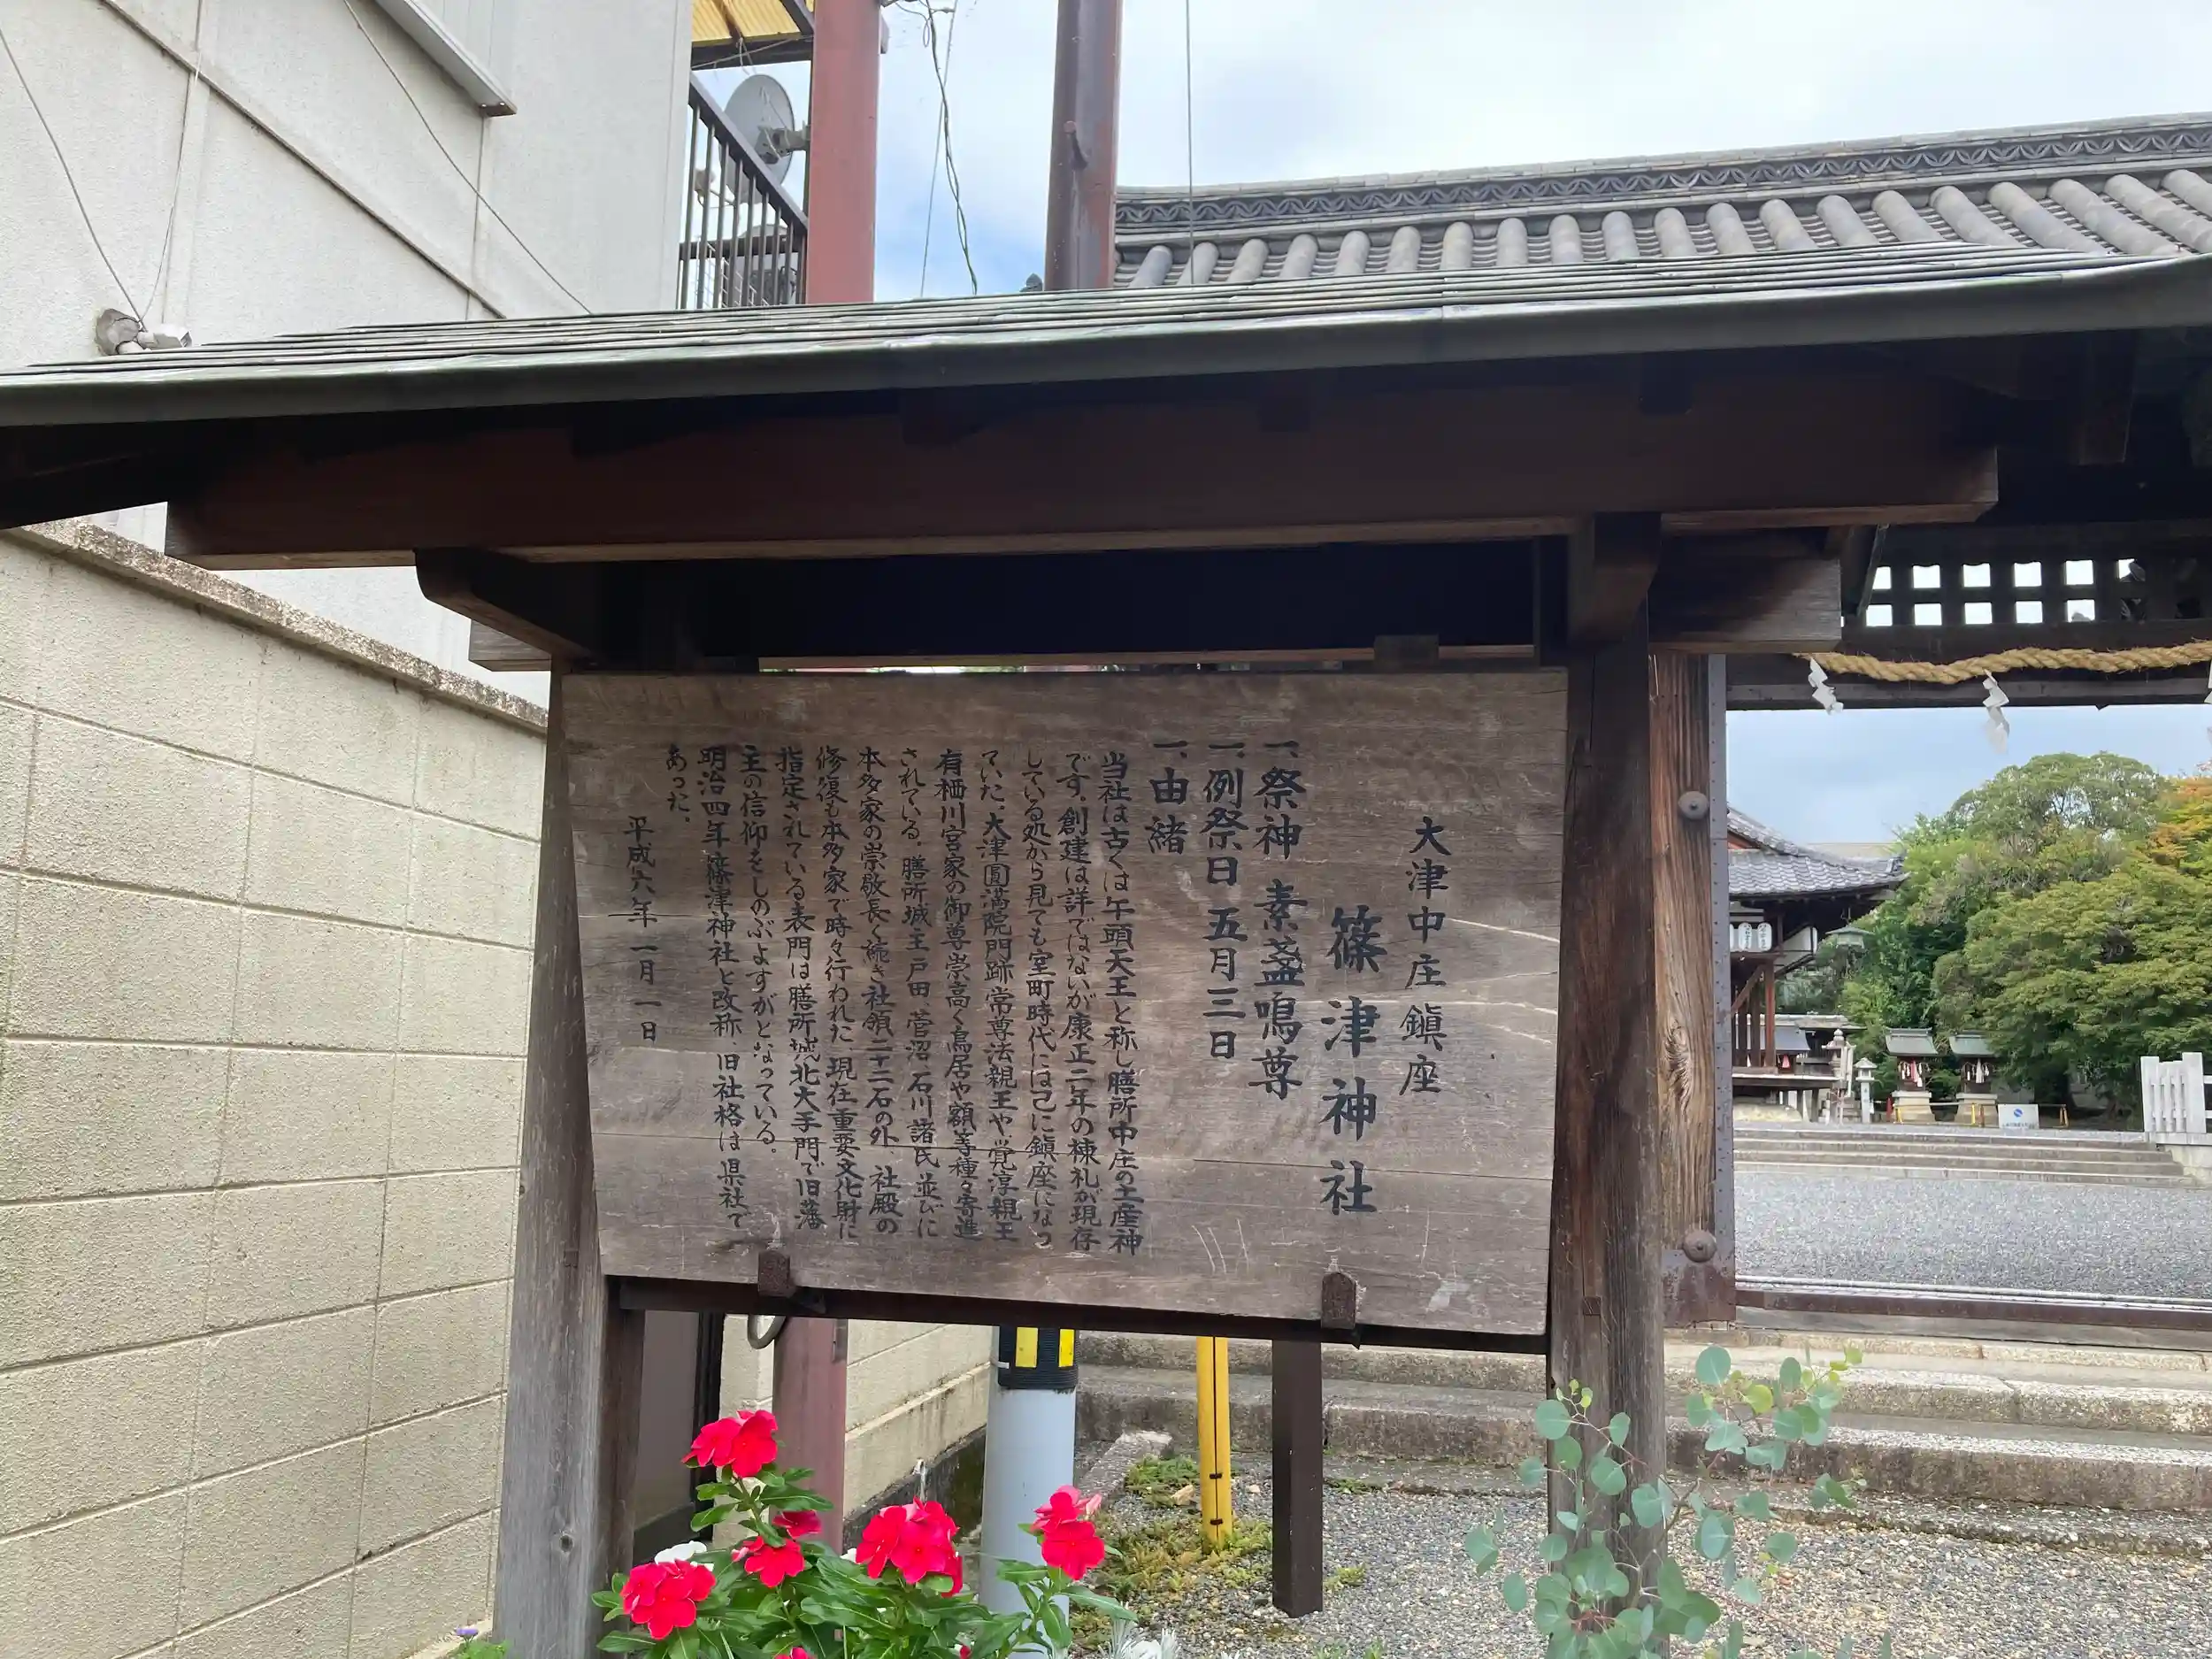 大津中庄鎮座
篠津神社
一、祭神 素盞嗚尊
一、例祭日 五月三日
一、由緒
当社は古くは午頭天王と称し膳所中庄の土産神
です。創建は詳ではないが康正二年の棟札が現存
している処から見ても室町時代には己に鎮座になっ
ていた。大津圓満院門跡常尊法親王や、覚淳親王
有栖川宮家の御尊崇高く鳥居や額等種々寄進
されている。膳所城主戸田、菅沼、石川諸氏並びに
本多家の崇敬長く続き社領二十二石の外、社殿の
修復も本多家で時々行われた。現在重要文化財に
指定されている表門は膳所城北大手門で旧藩
主の信仰をしのぶよすがとなっている。
明治四年篠津神社と改称、旧社格は県社で
あった。
平成六年一月一日